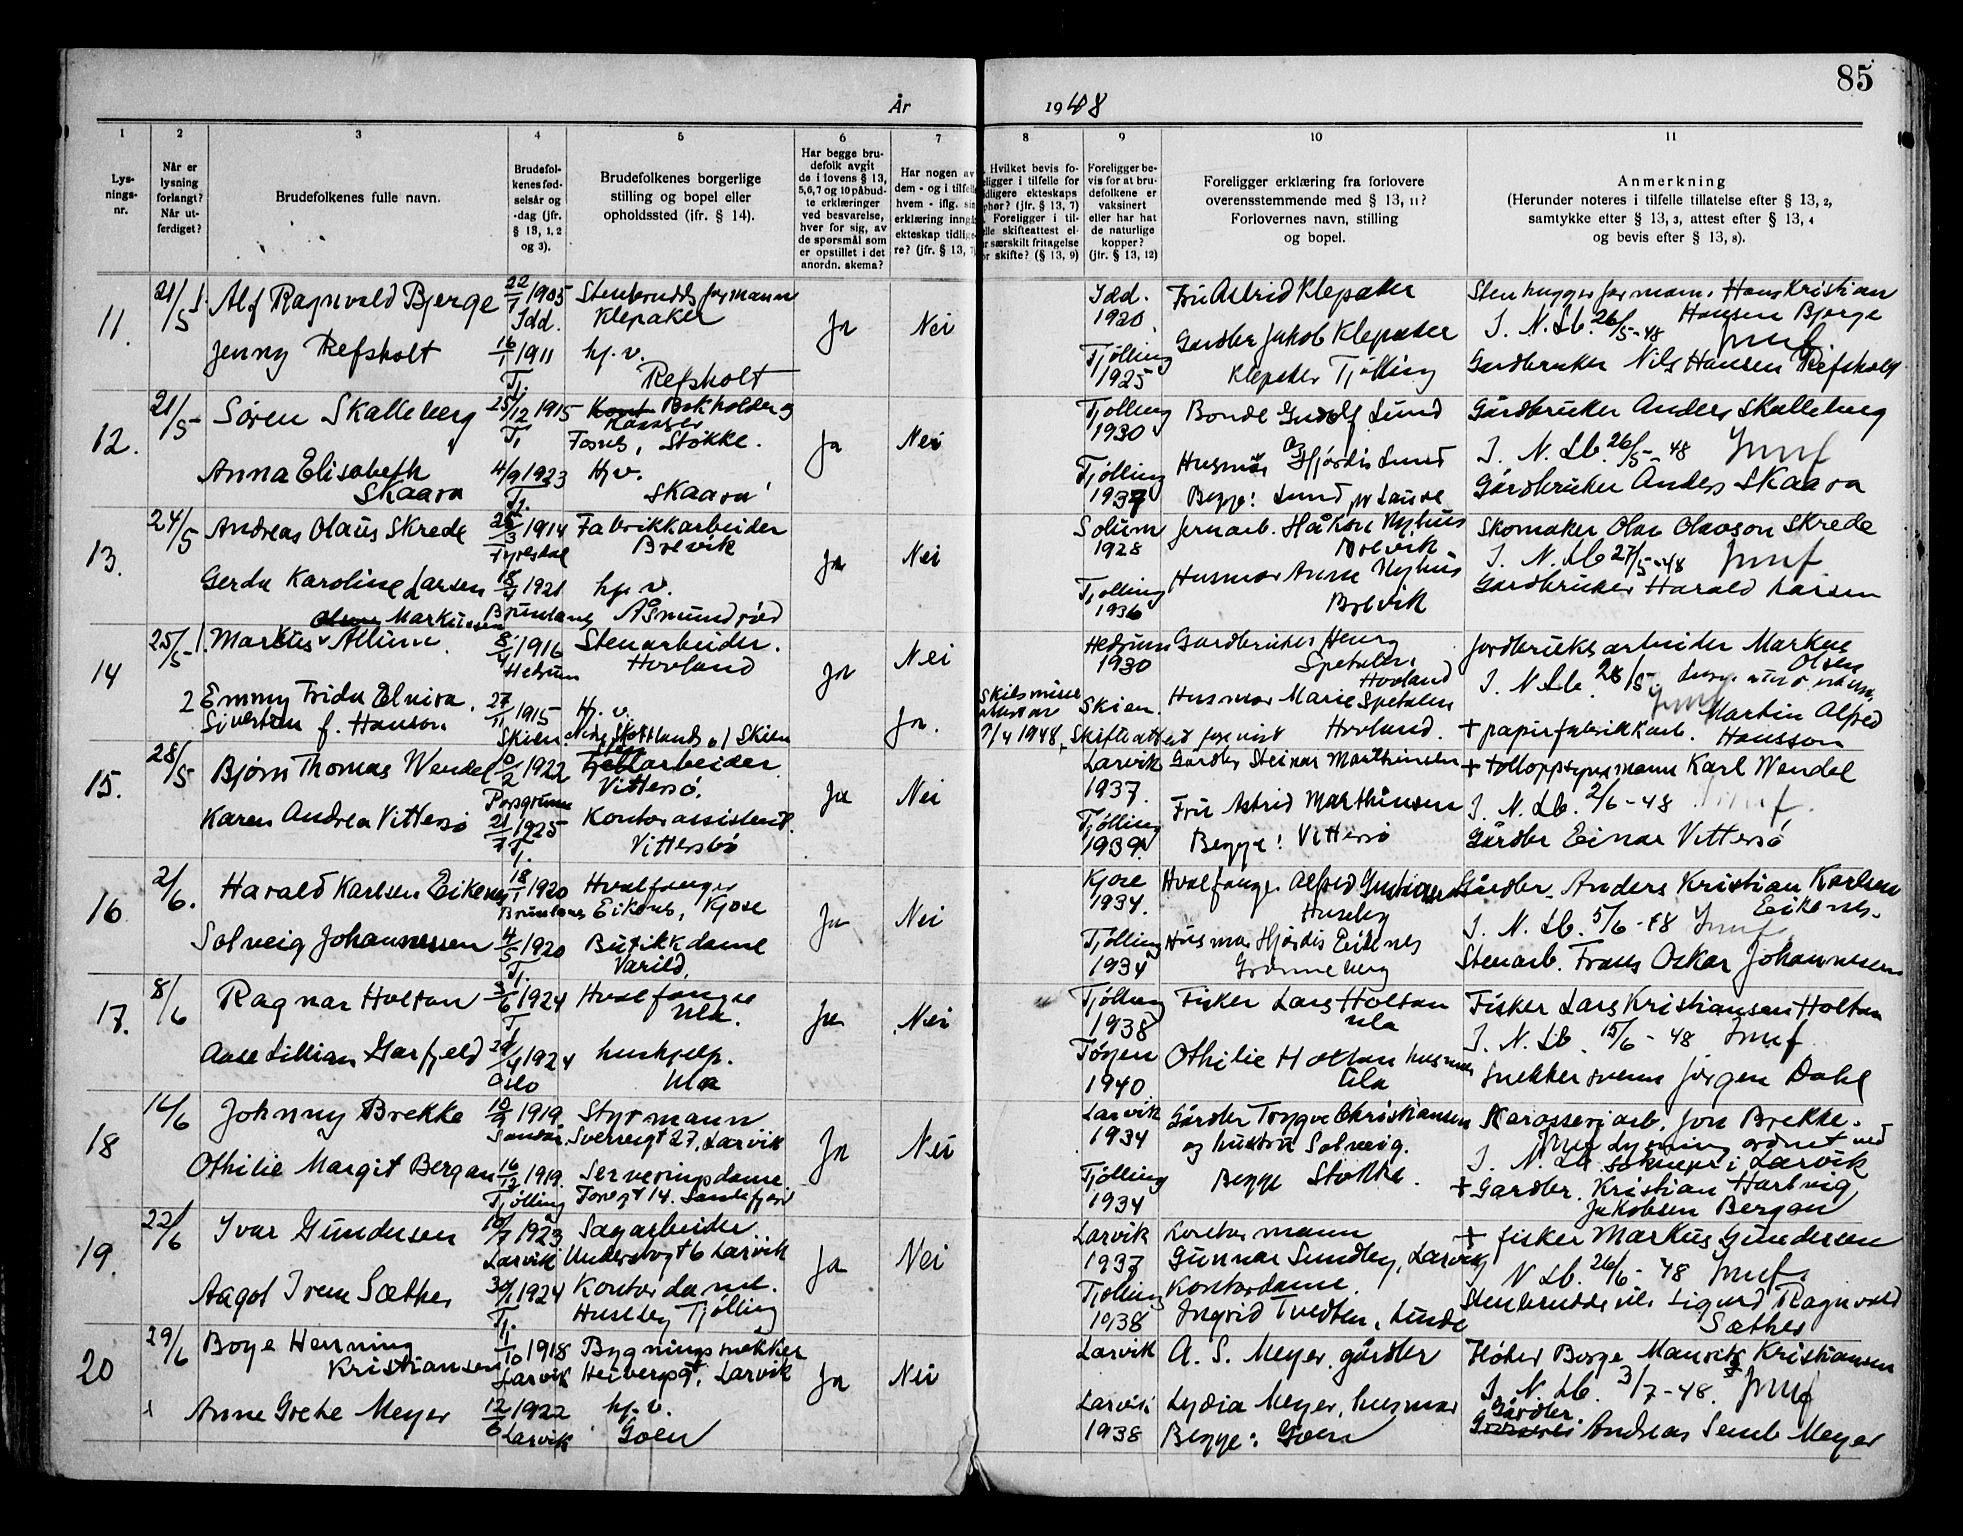 85
År 1948
1 2 3 4 5 6 7 8 9 10 11
Lysningsnr.
Når er lysning forlangt? Når utferdiget?
Brudefolkenes fulle navn.
Brudefolkenes fødselsår og -dag (jfr. § 13, 1, 2 og 3).
Brudefolkenes borgerlige stilling og bopel eller opholdssted (ifr. § 14).
Har begge brudefolk avgit de i lovens § 13, 5,6,7 og 10 påbudte erklæringer ved besvarelse, hver for sig, av de spørsmål som er opstillet i det anordn. skema?
Har nogen av dem - og i tilfelle hvem - iflg. sin erklæring inngå ekteskap tidligere? (jfr. § 13, 7)
Hvilket bevis foreligger i tilfelle for tidligere ekteskaps ophør? (jfr. § 13, 7) Foreligger i tilfelle skifteattest eller særskilt fritagelse for skifte? (§ 13, 9)
Foreligger bevis for at brudefolkene er vaksinert eller har hat de naturlige kopper? (jfr. § 13, 12)
Foreligger erklæring fra forlovere overensstemmende med § 13, 11? Forlovernes navn, stilling og bopel.
Anmerkning (Herunder noteres i tilfelle tillatelse efter § 13, 2, samtykke efter § 13, 3, attest efter § 13, 4 og bevis efter § 13, 8).
11. 21/5 Alf Ragnvald Bjerge 22/7 1905 Idd. Stenbruddsformann Klepaker Ja Nei Idd. 1920 Fru Astrid Klepaker Stenhuggerformann Hans Kristian Hansen Bjerge
I. N. Lb. 26/5-48
Jenny Refsholt 16/1 1911 Tj. hj. v. Refsholt Tjølling 1925 Gardbr Jakob Klepaker Klepaker Tjølling Gardbruker Nils Hansen Refsholt
12. 21/5 Søren Skalleberg 25/12 1915 Tj Bokholder og Kasserer Fosnes, Stokke. Ja Nei Tjølling 1930 Bonde Lund Gårdbruker Anders Skalleberg
I. N. Lb. 26/5-48
Anna Elisabeth Skaara 4/9 1923 Tj. Hj v. Skaara Tjølling 1937 Husmor Hjørdis Lund Begge: Lund Gårdbruker Anders Skaara
13. 24/5 Andreas Olaus Skrede /3 1914 Fyresdal Fabrikkarbeider Brevik Ja Nei Solum 1928 Jernarb. Håkon Nyhus Brevik Skomaker Olav Olavson Skrede
I. N. Lb 27/5-48
Gerda Karoline Larsen 1921 Brunlanes hj. v. Åsmundrød Tjølling 1936 Husmor Anne Nyhus Brevik Gardbruker Harald Larsen
14 25/5 Markus Markussen Allum 8/4 1916 Hedrum Stenarbeider. Hovland Ja Nei Hedrum 1930 Gardbruker Henry Spetalen Hovland Jordbruksarbeider Markus Olsen
I. N Lb. 28/5
2 Emmy Frida Elvira Sivertsen f. Hansen 27/11 1915 Skien Hj. v. Skien Ja. 7/4 1948, Skifteattest forevist Skien. Husmor Marie Spetalen Hovland. + papirfabrikkarb. Martin Alfred Hansson
15. 28/5 Bjørn Thomas Wendel /2 1922 Porsgrunn arbeider Vittersø. Ja Nei Larvik 1937. Gardbr Steinar Marthinsen + tolloppsynsmann Karl Wendel
I. N. Lb. 2/6-48
Karen Andrea Vittersø 21/7 1925 Tj. Kontorassistent. Vittersø Tjølling 1939. Fru Astrid Marthinsen Begge: Vittersø Gårdbr Einar Vittersø
16 2/6. Harald Karlsen Eikenes 18/1 1920 Brunlanes Hvalfanger Eikenes, Kjose Ja Nei Kjose 1934. Hvalfanger Alfred Huseby Gårdbr. Anders Kristian Karlsen Eikenes.
I. N. Lb. 5/6-48
Solveig Johannessen 4/5 1920 Tj. Butikkdame Varild. Tjølling 1934 Husmor Hjørdis Eikenes Grønneberg Stenarb. Frans Oskar Johannessen
17. 8/6 Ragnar Holtan 3/6 1924 Tj Hvalfanger Ula. Ja Nei Tjølling 1938 Fisker Lars Holtan Ula Fisker Lars Kristiansen Holtan
I. N. Lb. 15/6-48
Aase Lillian Garfjeld 29/4 1924 Oslo hushjelp. Ula Tøyen 1940 Othilie Holtan husmor Ula Snekkersvenn Jørgen Dahl
18 14/6 Johnny Brekke 1919 Sandar Styrmann Sverresgt 27, Larvik Ja Nei Larvik 1934 Gårdbr Trygve Christiansen og hustru Solveig. Karosseriarb. Jon Brekke.
Lysning ordnet ved soknepr i Larvik
Othilie Margit Bergan 16/12 1919. Tjølling Serveringsdame Toregt 14. Sandefjord Tjølling 1934 Begge Stokke. + Gardbr. Kristian Hartvig Jakobsen Bergan
19. 22/6 Ivar Gundersen 1923 Larvik Sagarbeider Larvik Ja Nei Larvik 1937 Kontormann Gunnar Sundby, Larvik + fisker Markus Gundersen
N Lb. 26/6-48
Aagot Irene Sæther 30/1 1924 Tj. Kontordame. Huseby Tjølling Tjølling 1938 Kontordame. Ingrid Tvedten, Lunde Sigurd Ragnvald Sæther
20 29/6 Boye Henning Kristiansen 1/10 1918 Larvik Bygningssnekker Heibergsgt, Larvik Ja Nei Larvik A. S. Meyer, gårdbr Fløter Borge Mauritz Kristiansen
I. N. Lb. 3/7-48.
Anne Grete Meyer 12/6 1922 Larvik hj. v. Goen Larvik 1938 Lydia Meyer, husmor Begge: Goen Gårdbr. Andreas Semb Meyer